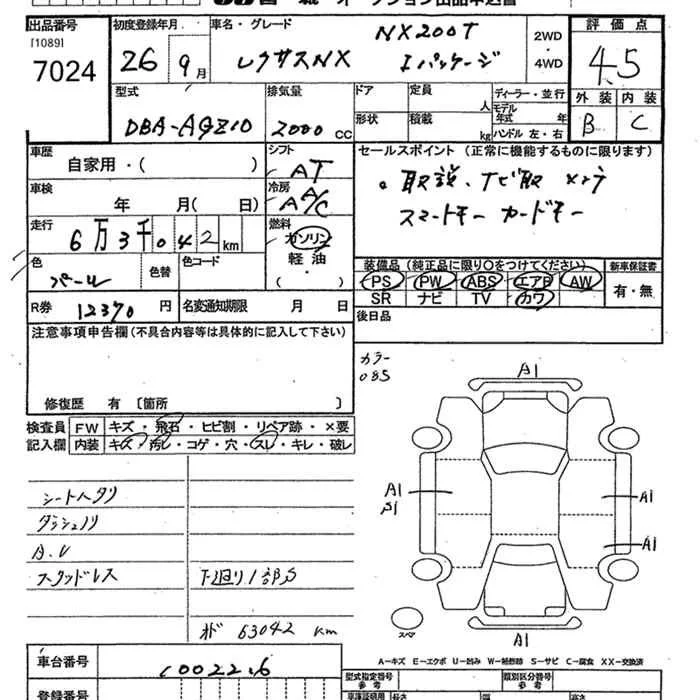 出品番号
[1089]
7024
初度登録年月
26 9月
車名・グレード
NX200T
レクサスNX Iパッケージ
2WD
・
4WD
評価点
4.5
外装 内装
B C
型式
DBA-AGZ10
排気量
2000 cc
ドア
形状
定員
人
積載
kg
ディーラー・並行
モデル年式 年
ハンドル 左・右
車歴
自家用・( )
シフト
AT
車検
年 月( 日)
冷房
AAC
走行
6万3千042km
燃料
ガソリン
軽油
( )
色
パール
色替
色コード
R券 12370円
名変通知期限 月 日
セールスポイント (正常に機能するものに限ります)
。取説、ナビ取
スマートキー カードキー
装備品 (純正品に限り○をつけてください)
PS PW ABS エアB AW
SR ナビ TV カワ
新車保証書
有・無
後日品
注意事項申告欄(不具合内容等は具体的に記入して下さい)
修復歴 有 〔箇所 〕
カラー
085
検査員
記入欄
FW キズ・飛石・ヒビ割・リペア跡・×要
内装 キズ・汚レ・コゲ・穴・スレ・キレ・破レ
シートヘタリ
ダッシュノリ
A.V
スタッドレス
下廻り1部S
オド 63042 km
A1
A1
S1
A1
A1
A1
スペア
A-キズ E-エクボ U-凹み W-補修跡 S-サビ C-腐食 XX-交換済
車台番号
1002226
登録番号
型式指定番号
参考
類別区分番号
参考
長さ
幅
高さ